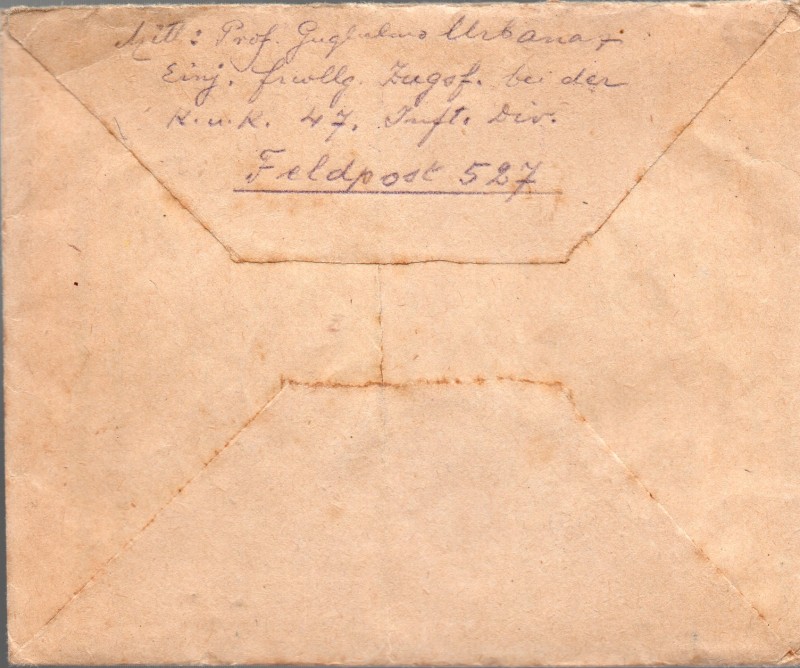 Mitt: Prof. Guglielmo Urbana
Einj. frwllg. Zugsf. bei der
K.u.K. 47. Inft. Div.
Feldpost 527